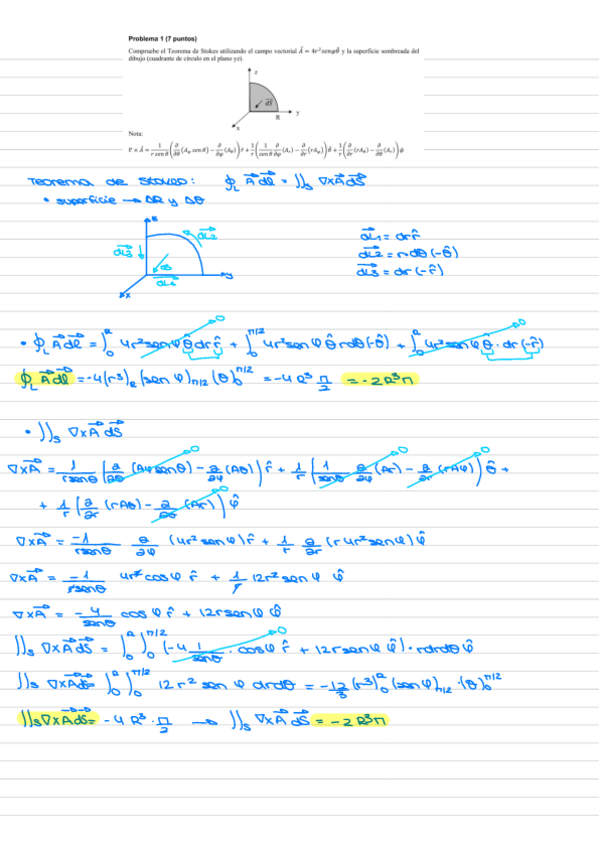 Problema 1 (7 puntos)
Compruebe el Teorema de Stokes utilizando el campo vectorial A⃗ = 4r²senφθ̂ y la superficie sombreada del
dibujo (cuadrante de círculo en el plano yz).
z
dS⃗
R
y
x
Nota:
∇ × A⃗ = 1/(r sen θ) (∂/∂θ (Aφ sen θ) − ∂/∂φ (Aθ)) r̂ + 1/r (1/(sen θ) ∂/∂φ (Ar) − ∂/∂r (rAφ)) θ̂ + 1/r (∂/∂r (rAθ) − ∂/∂θ (Ar)) φ̂
Teorema de Stokes: ∮L A⃗ dl⃗ = ∬S ∇xA⃗ dS⃗
• superficie → ΔR y Δθ
z
dL2
dL3
dS
dL1
y
x
dL1 = dr r̂
dL2 = rdθ (-θ̂)
dL3 = dr (-r̂)
• ∮L A⃗ dl⃗ = ∫0^R 4r²senφ θ̂ dr r̂ + ∫0^π/2 4r²senφ θ̂ rdθ(-θ̂) + ∫0^R 4r²senφ θ̂ · dr (-r̂)
0
0
∮L A⃗ dl⃗ = -4(r³)R (sen φ)π/2 (θ)0^π/2 = -4 R³ π/2 = -2R³π
• ∬S ∇xA⃗ dS⃗
∇xA⃗ = 1/(rsenθ) (∂/∂θ (Aφ senθ) - ∂/∂φ (Aθ)) r̂ + 1/r (1/senθ ∂/∂φ (Ar) - ∂/∂r (rAφ)) θ̂ +
0
0
0
+ 1/r (∂/∂r (rAθ) - ∂/∂θ (Ar)) φ̂
0
∇xA⃗ = -1/(rsenθ) ∂/∂φ (4r² senφ) r̂ + 1/r ∂/∂r (r4r²senφ) φ̂
∇xA⃗ = -1/(rsenθ) 4r² cos φ r̂ + 1/r 12r² sen φ φ̂
∇xA⃗ = -4/senθ cos φ r̂ + 12rsen φ φ̂
∬S ∇xA⃗ dS⃗ = ∫0^R ∫0^π/2 (-4 1/senθ · cosφ r̂ + 12rsenφ φ̂) · rdrdθ φ̂
0
∬S ∇xA⃗ dS⃗ = ∫0^R ∫0^π/2 12 r² sen φ drdθ = -12/3 (r³)0^R (sen φ)π/2 · (θ)0^π/2
∬S ∇xA⃗ dS⃗ = -4 R³ · π/2 → ∬S ∇xA⃗ dS⃗ = -2R³π